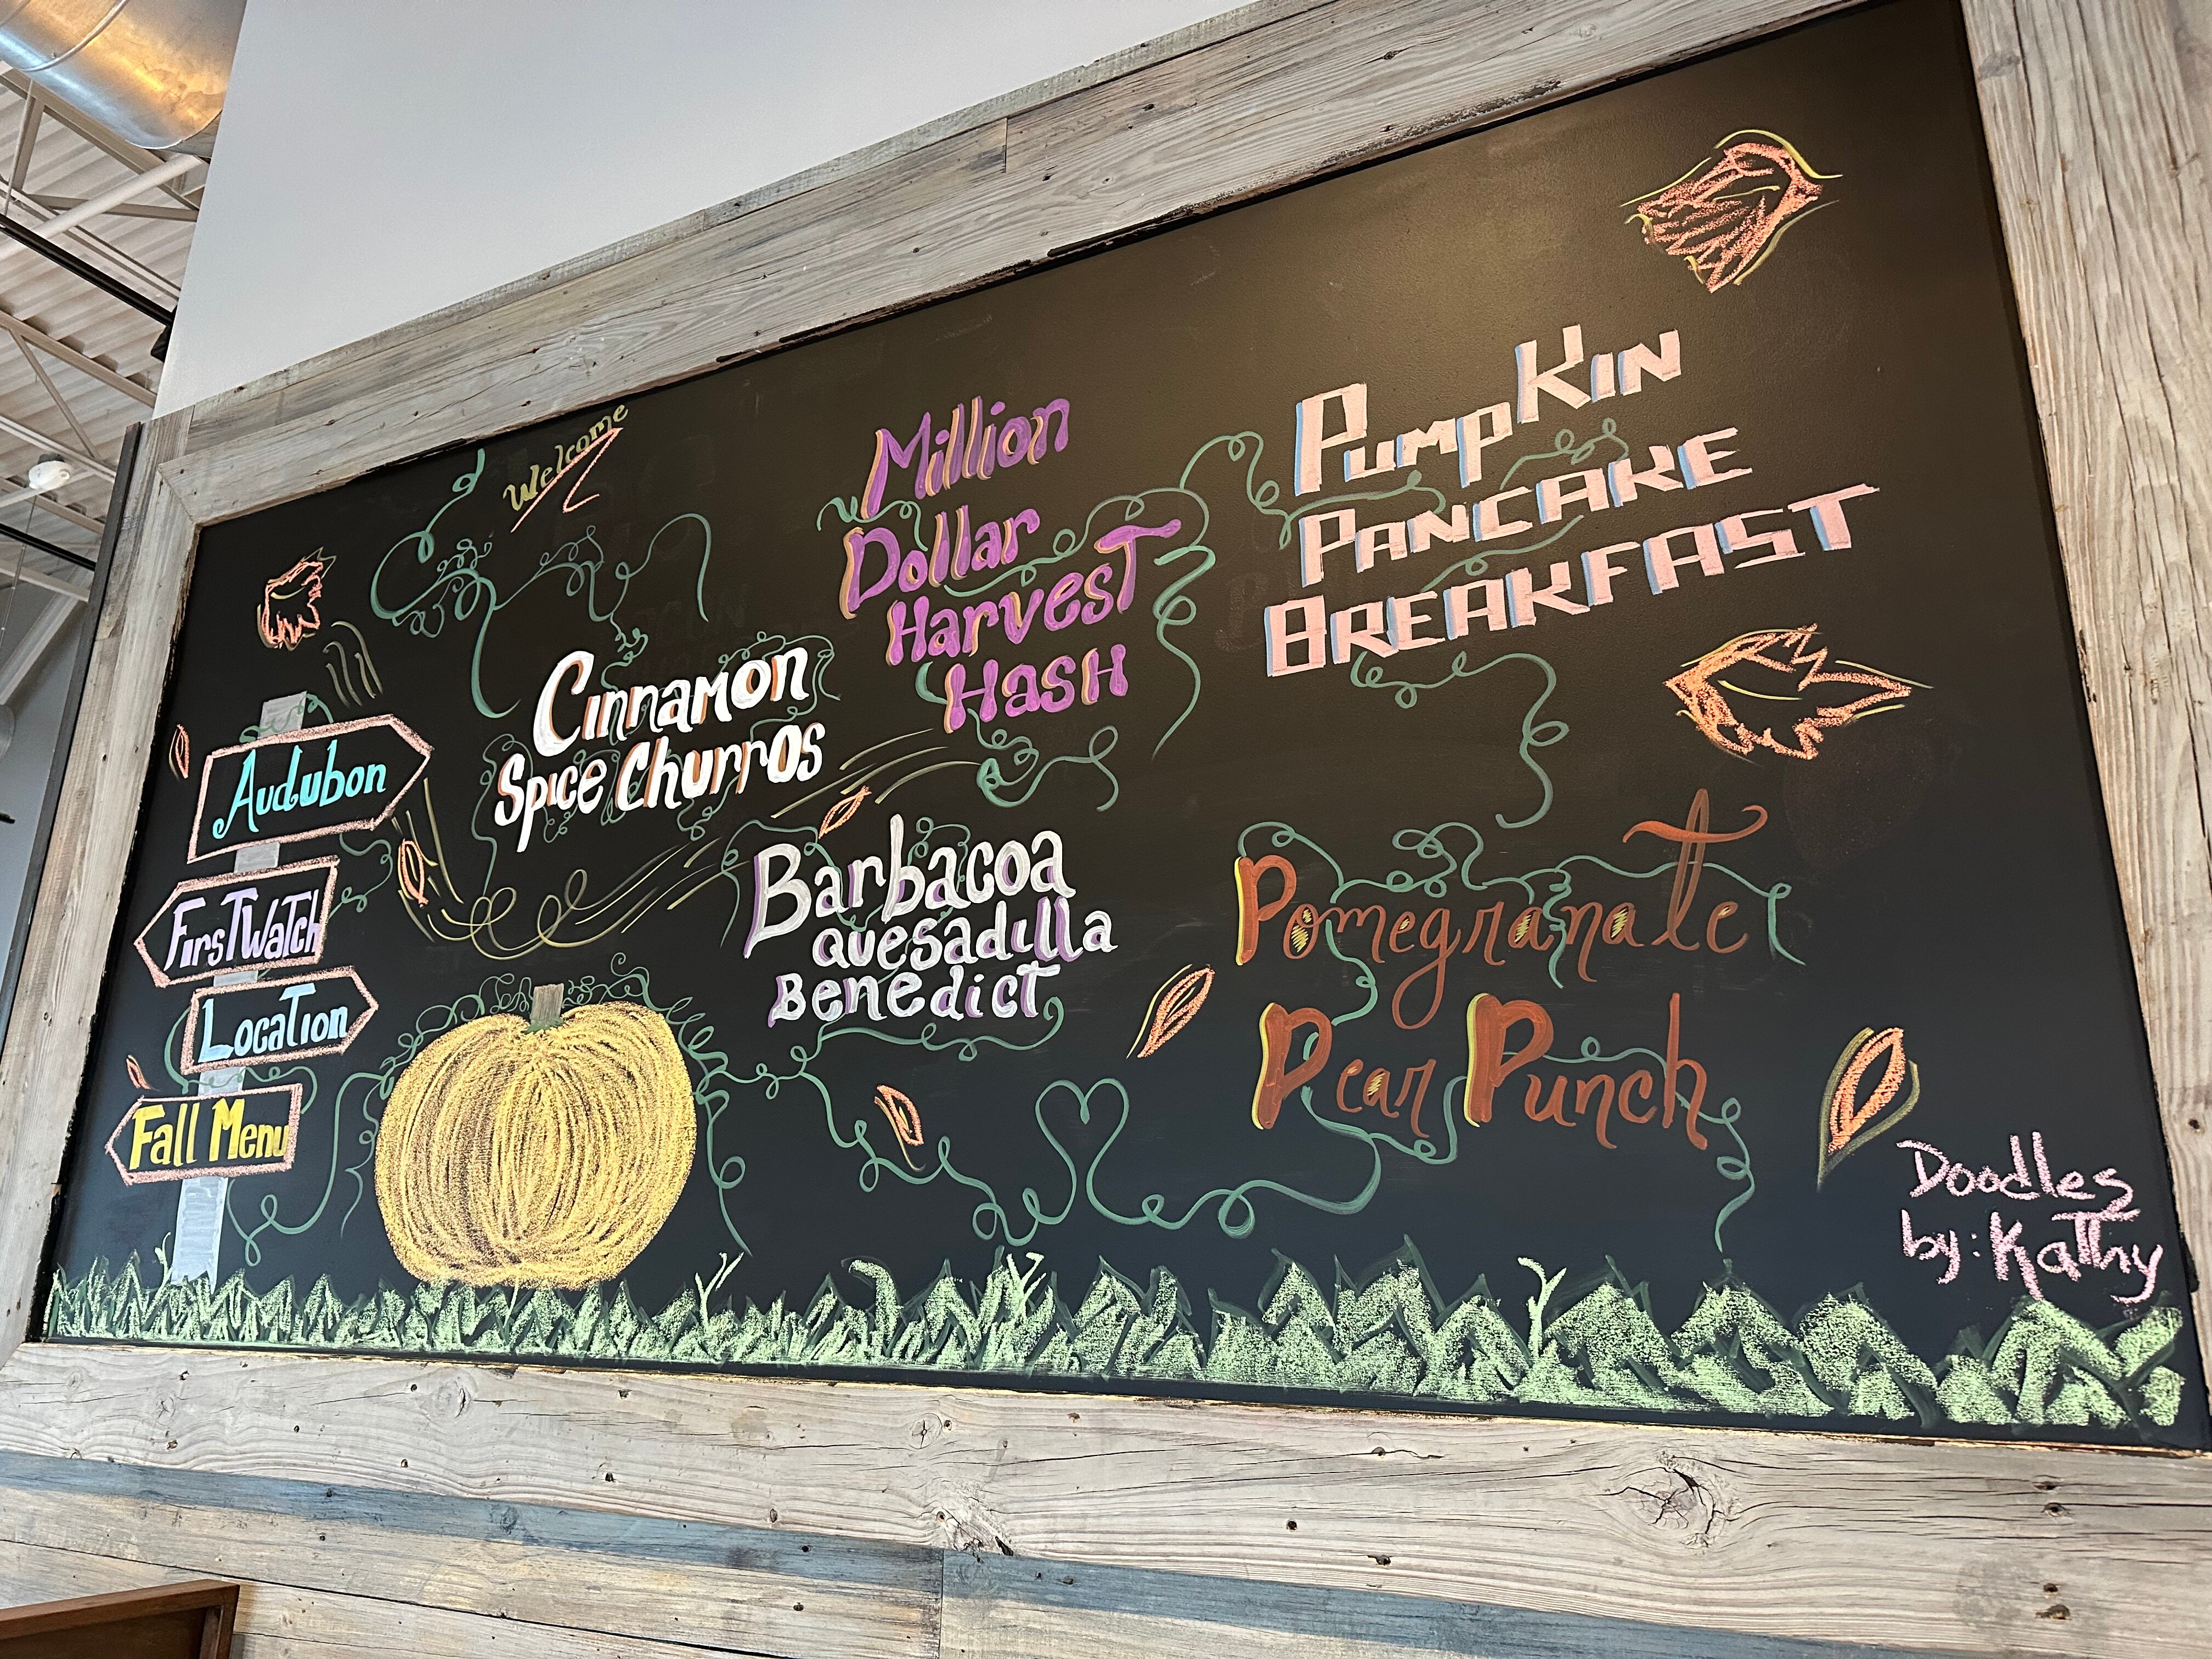 Welcome
Audubon
First Watch
Location
Fall Menu
Cinnamon
Spice Churros
Million
Dollar
Harvest
Hash
Pumpkin
Pancake
Breakfast
Barbacoa
quesadilla
Benedict
Pomegranate
Pear Punch
Doodles
by: Kathy